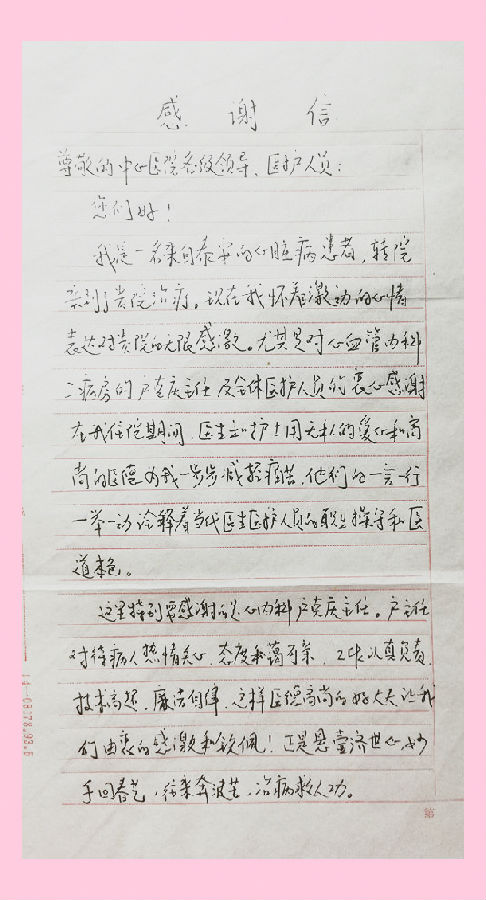 感谢信
尊敬的中心医院各级领导、医护人员：
您们好！
我是一名来自泰安的心脏病患者，转院
来到贵院治病，现在我怀着激动的心情
表达对贵院的无限感激。尤其是对心血管内科
二病房的卢克庆主任及全体医护人员的衷心感谢
在我住院期间医生和护士用无私的爱心和高
尚的医德为我一步步减轻病痛，他们的一言一行
一举一动诠释着当代医生医护人员的职业操守和医
道本色。
这里特别要感谢的是心内科卢克庆主任。卢主任
对待病人热情关心态度和蔼可亲，工作认真负责，
技术高超，廉洁自律，这样医德高尚的好大夫让我
们由衷的感激和钦佩！正是悬壶济世心，妙
手回春艺，往来奔波苦，治病救人功。
第